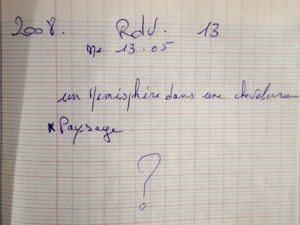 2008. RdV. 13
Me 13.05
un hémisphère dans une chevelure
* Paysage
?